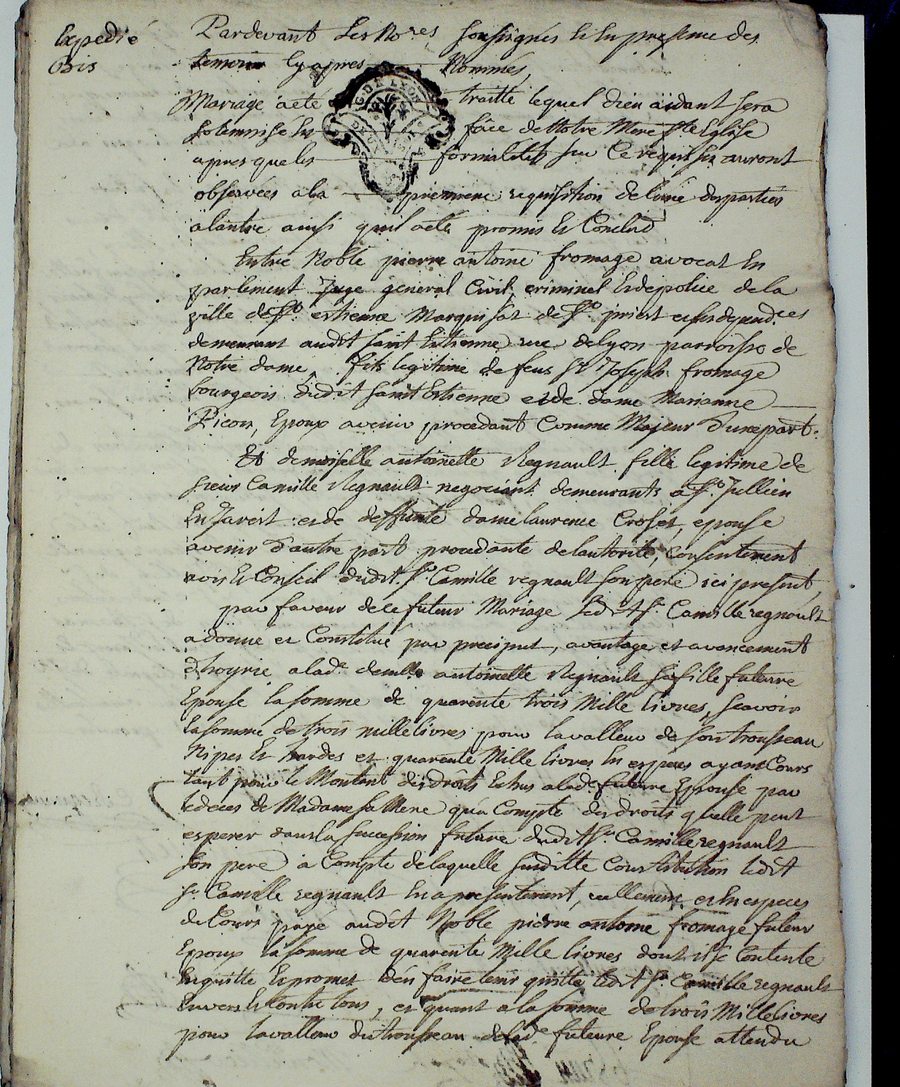 Expedié
Bis
Pardevant Les No.res Soussignés et En presence des
temoins Cy apres Nommés,
G. DE LYON
DEUX
Mariage a eté traitté lequel dieu aidant sera
solemnisé En face de Notre Mere S.te Eglise
apres que les formalités sur Ce requises auront
observées a la premiere requisition de l'une des parties
a lautre ainsi quil a eté promis et Conclud
Entre Noble pierre antoine fromage avocat En
parlement Juge general Civil, criminel et de police de la
ville de S.t estienne Marquisat de S.t priest et ses depend.ces
demeurant audit saint Estienne rue de Lyon parroisse de
Notre dame, fils legitime de feus S.r Joseph fromage
bourgeois dudit saint Estienne et de dame Marianne
Picon, Epoux avenir procedant Comme Majeur D'une part.
Et demoiselle antoinette Regnault fille legitime de
sieur Camille Regnault negociant demeurants a S.t Jullien
En Jarest et de deffunte dame laurence Crozet, epouse
avenir d'autre part procedante de lautorité, Consentement
avis et Conseil dudit S.r Camille regnault son pere ici present,
par faveur de ce futeur Mariage Ledit S.r Camille regnault
a donné et Constitué par preciput, avantage et avancement
d'hoyrie a lad.e demlle antoinette Regnault sa fille futeure
Epouse la somme de quarente trois Mille livres, scavoir
la somme de trois mille livres pour la valleur de son trousseau
Nipes et hardes et quarente Mille livres En especes ayant Cours
tant pour le Montent des droits Echus a lad.e future Epouse par
le deces de Madame sa Mere qu'a Compte des droits quelle peut
esperer dans la succession future dudit S.r Camille regnault
son pere a Compte de laquelle susditte Constitution Ledit
S.r Camille regnault En a presentement, reellement et En especes
de Cours payé audit Noble pierre antoine fromage futeur
Epoux la somme de quarente Mille livres dont il se Contente
En quitte et promet d'En faire tenir quitte Ledit S.r Camille regnault
Envers Et Contre tous, et quant a la somme de trois Mille livres
pour la valleur du trousseau de lad.e futeure Epouse attendu